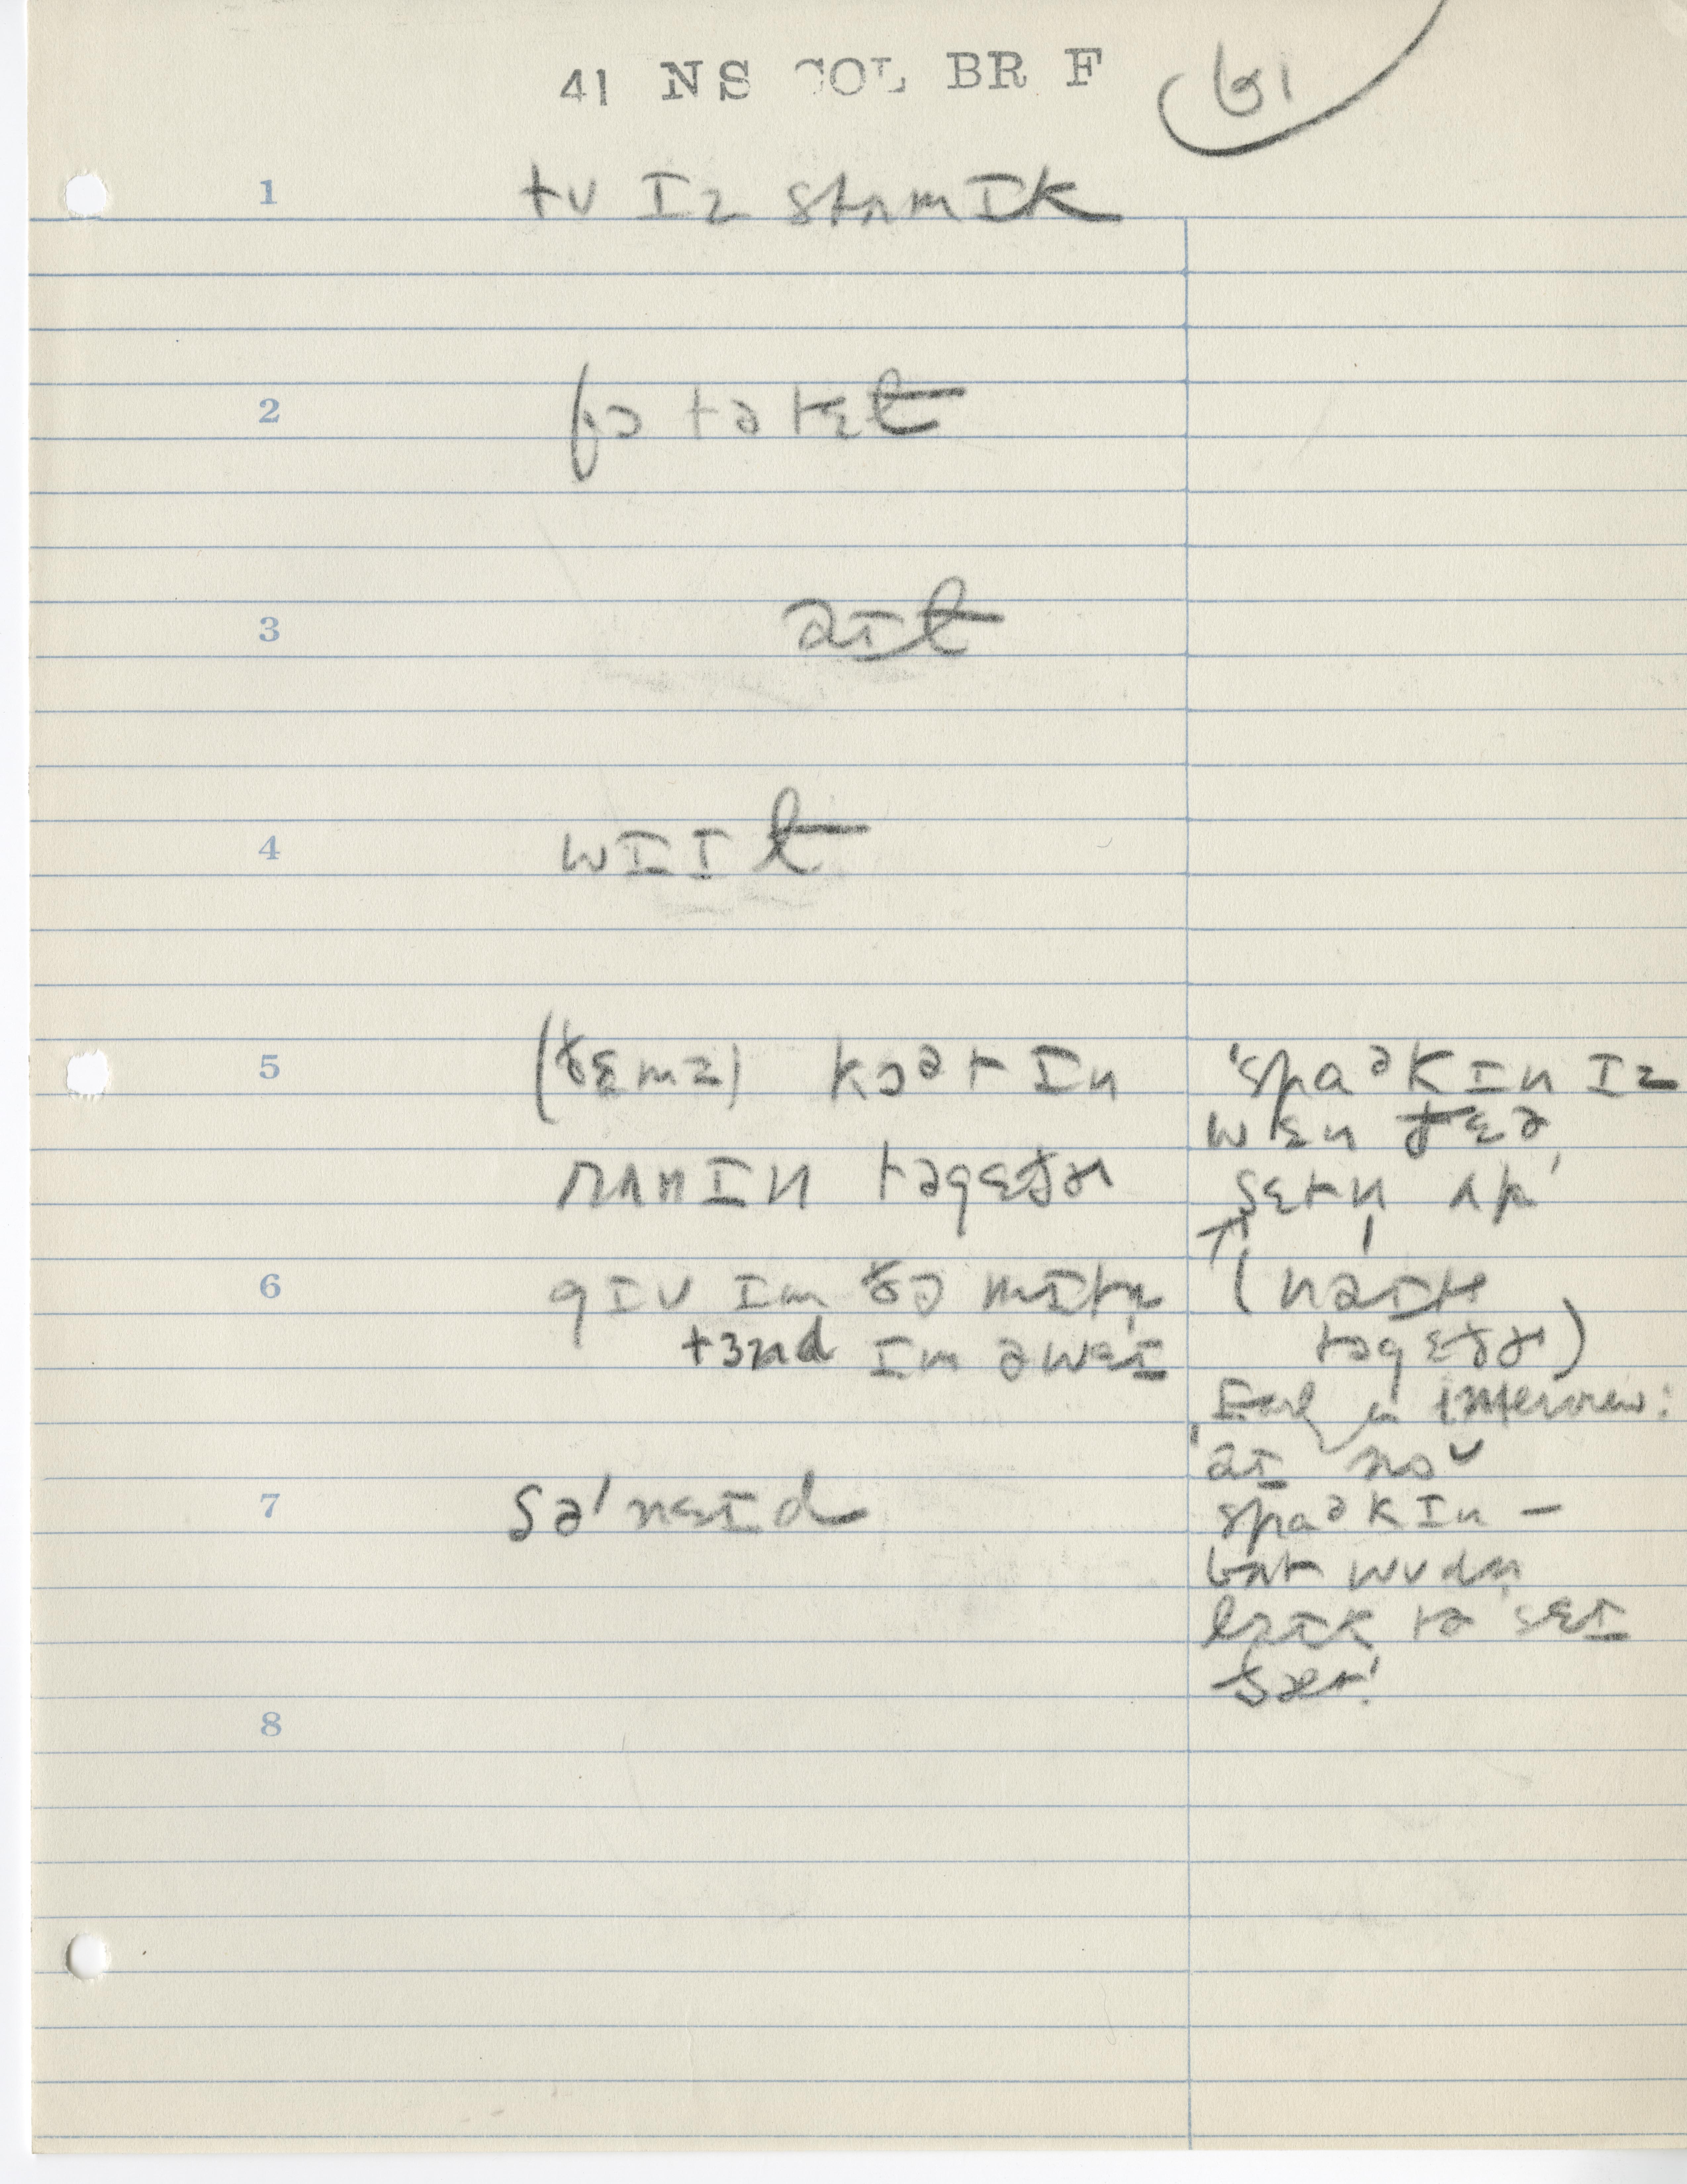 41 NS COL BR F 61
1 tʊ ɪz stʌmɪk
2
3 əɪt
4 wɪɪt
5 (ðɛmz) kɔᵊt ɪn
rʌnɪn təgɛðɚ
6 gɪv ɪm ðə mɪtn̩
tɜnd ɪm əwɛɪ
7 ʃə'nɛɪd
8
'spaᵊkɪn ɪz
wɛn ðɛə
sɛtn ʌp'
↑
(nəɪt
təgɛðɚ)
Earl in interview:
'əɪ noᵛ
spaᵊkɪn –
bʌt wʊdn̩
ləɪk tə sɛɪ
ðæt'